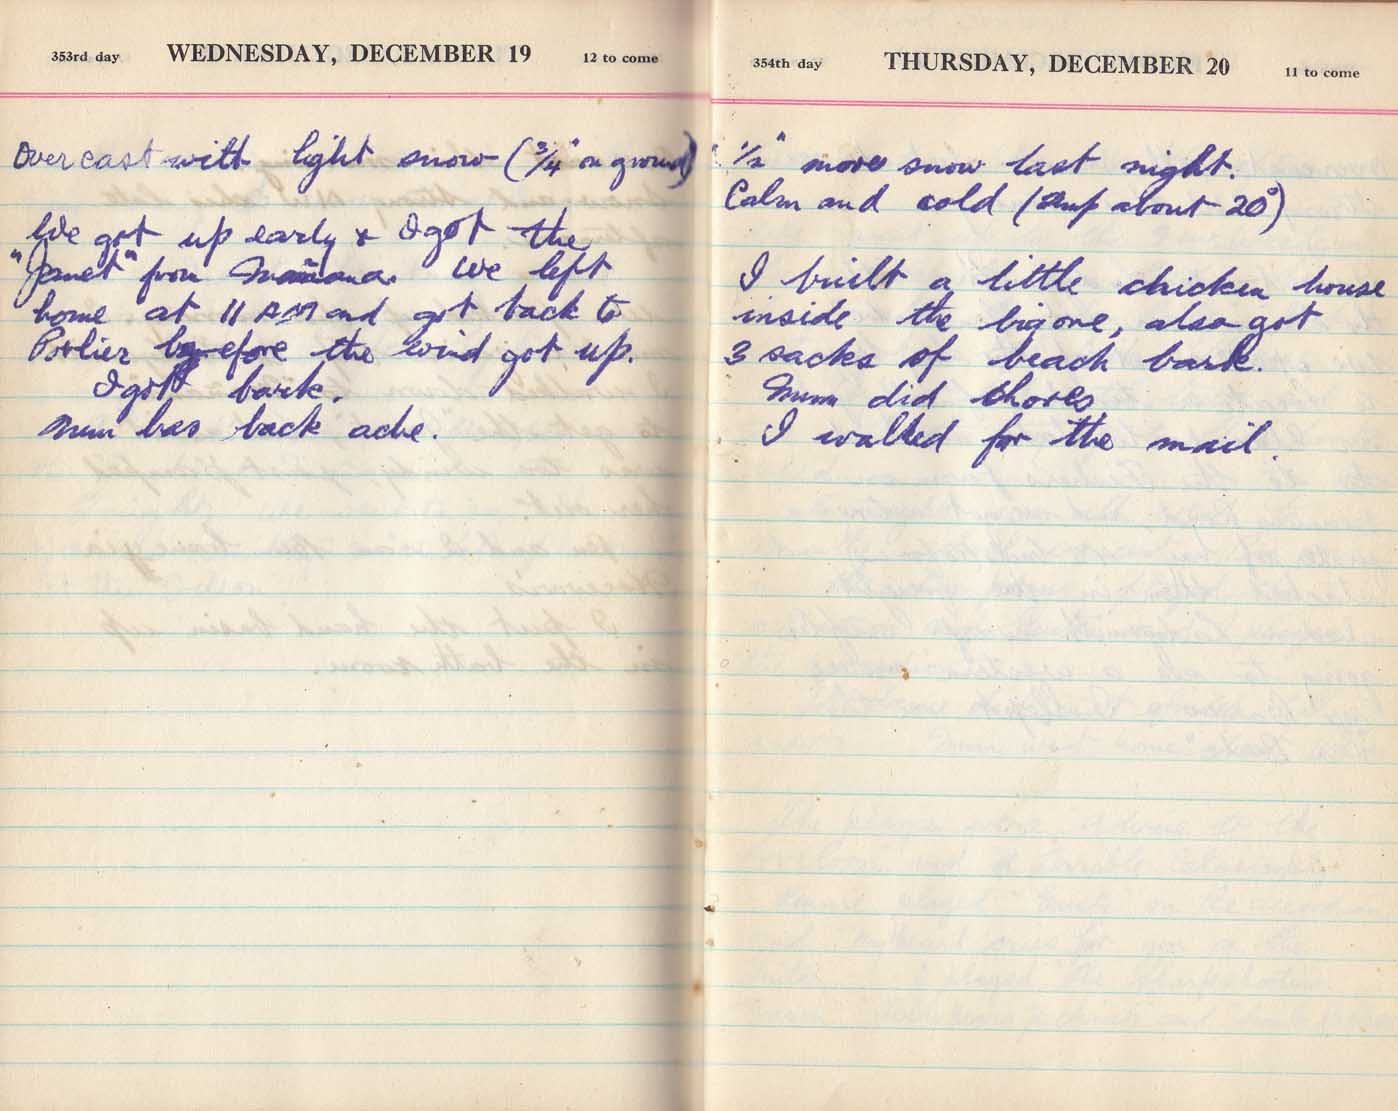 353rd day WEDNESDAY, DECEMBER 19 12 to come
Overcast with light snow (3/4" on ground)
We got up early & I got the
"Janet" from Mañana. We left
home at 11 AM and got back to
Porlier before the wind got up.
I got bark.
Mum has back ache.
354th day THURSDAY, DECEMBER 20 11 to come
1/2" more snow last night.
Calm and cold (temp about 20°)
I built a little chicken house
inside the big one, also got
3 sacks of beach bark.
Mum did chores
I walked for the mail.